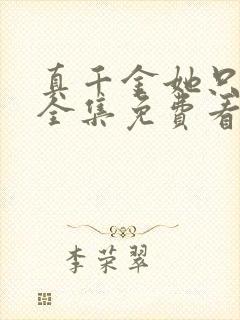 真千金她只
全集免费看
李荣翠